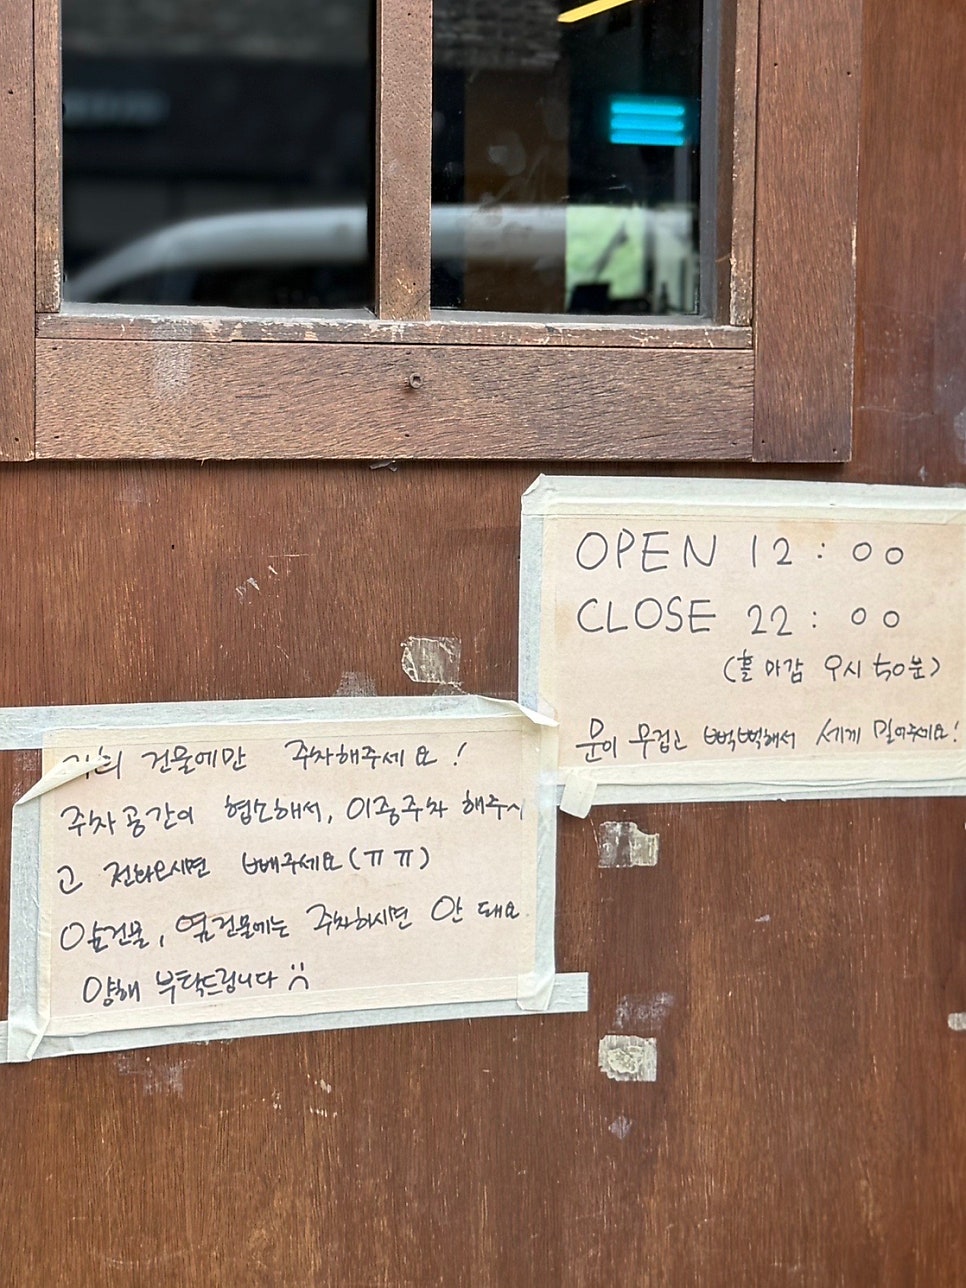 OPEN 12:00
CLOSE 22:00
(홀 마감 9시 50분)
문이 무겁고 뻑뻑해서 세게 밀어주세요!
저희 건물에만 주차해주세요!
주차공간이 협소해서, 이중주차 해주시
고 전화오시면 빼주세요(ㅠㅠ)
앞건물, 옆건물에는 주차하시면 안 돼요
양해 부탁드립니다 :(